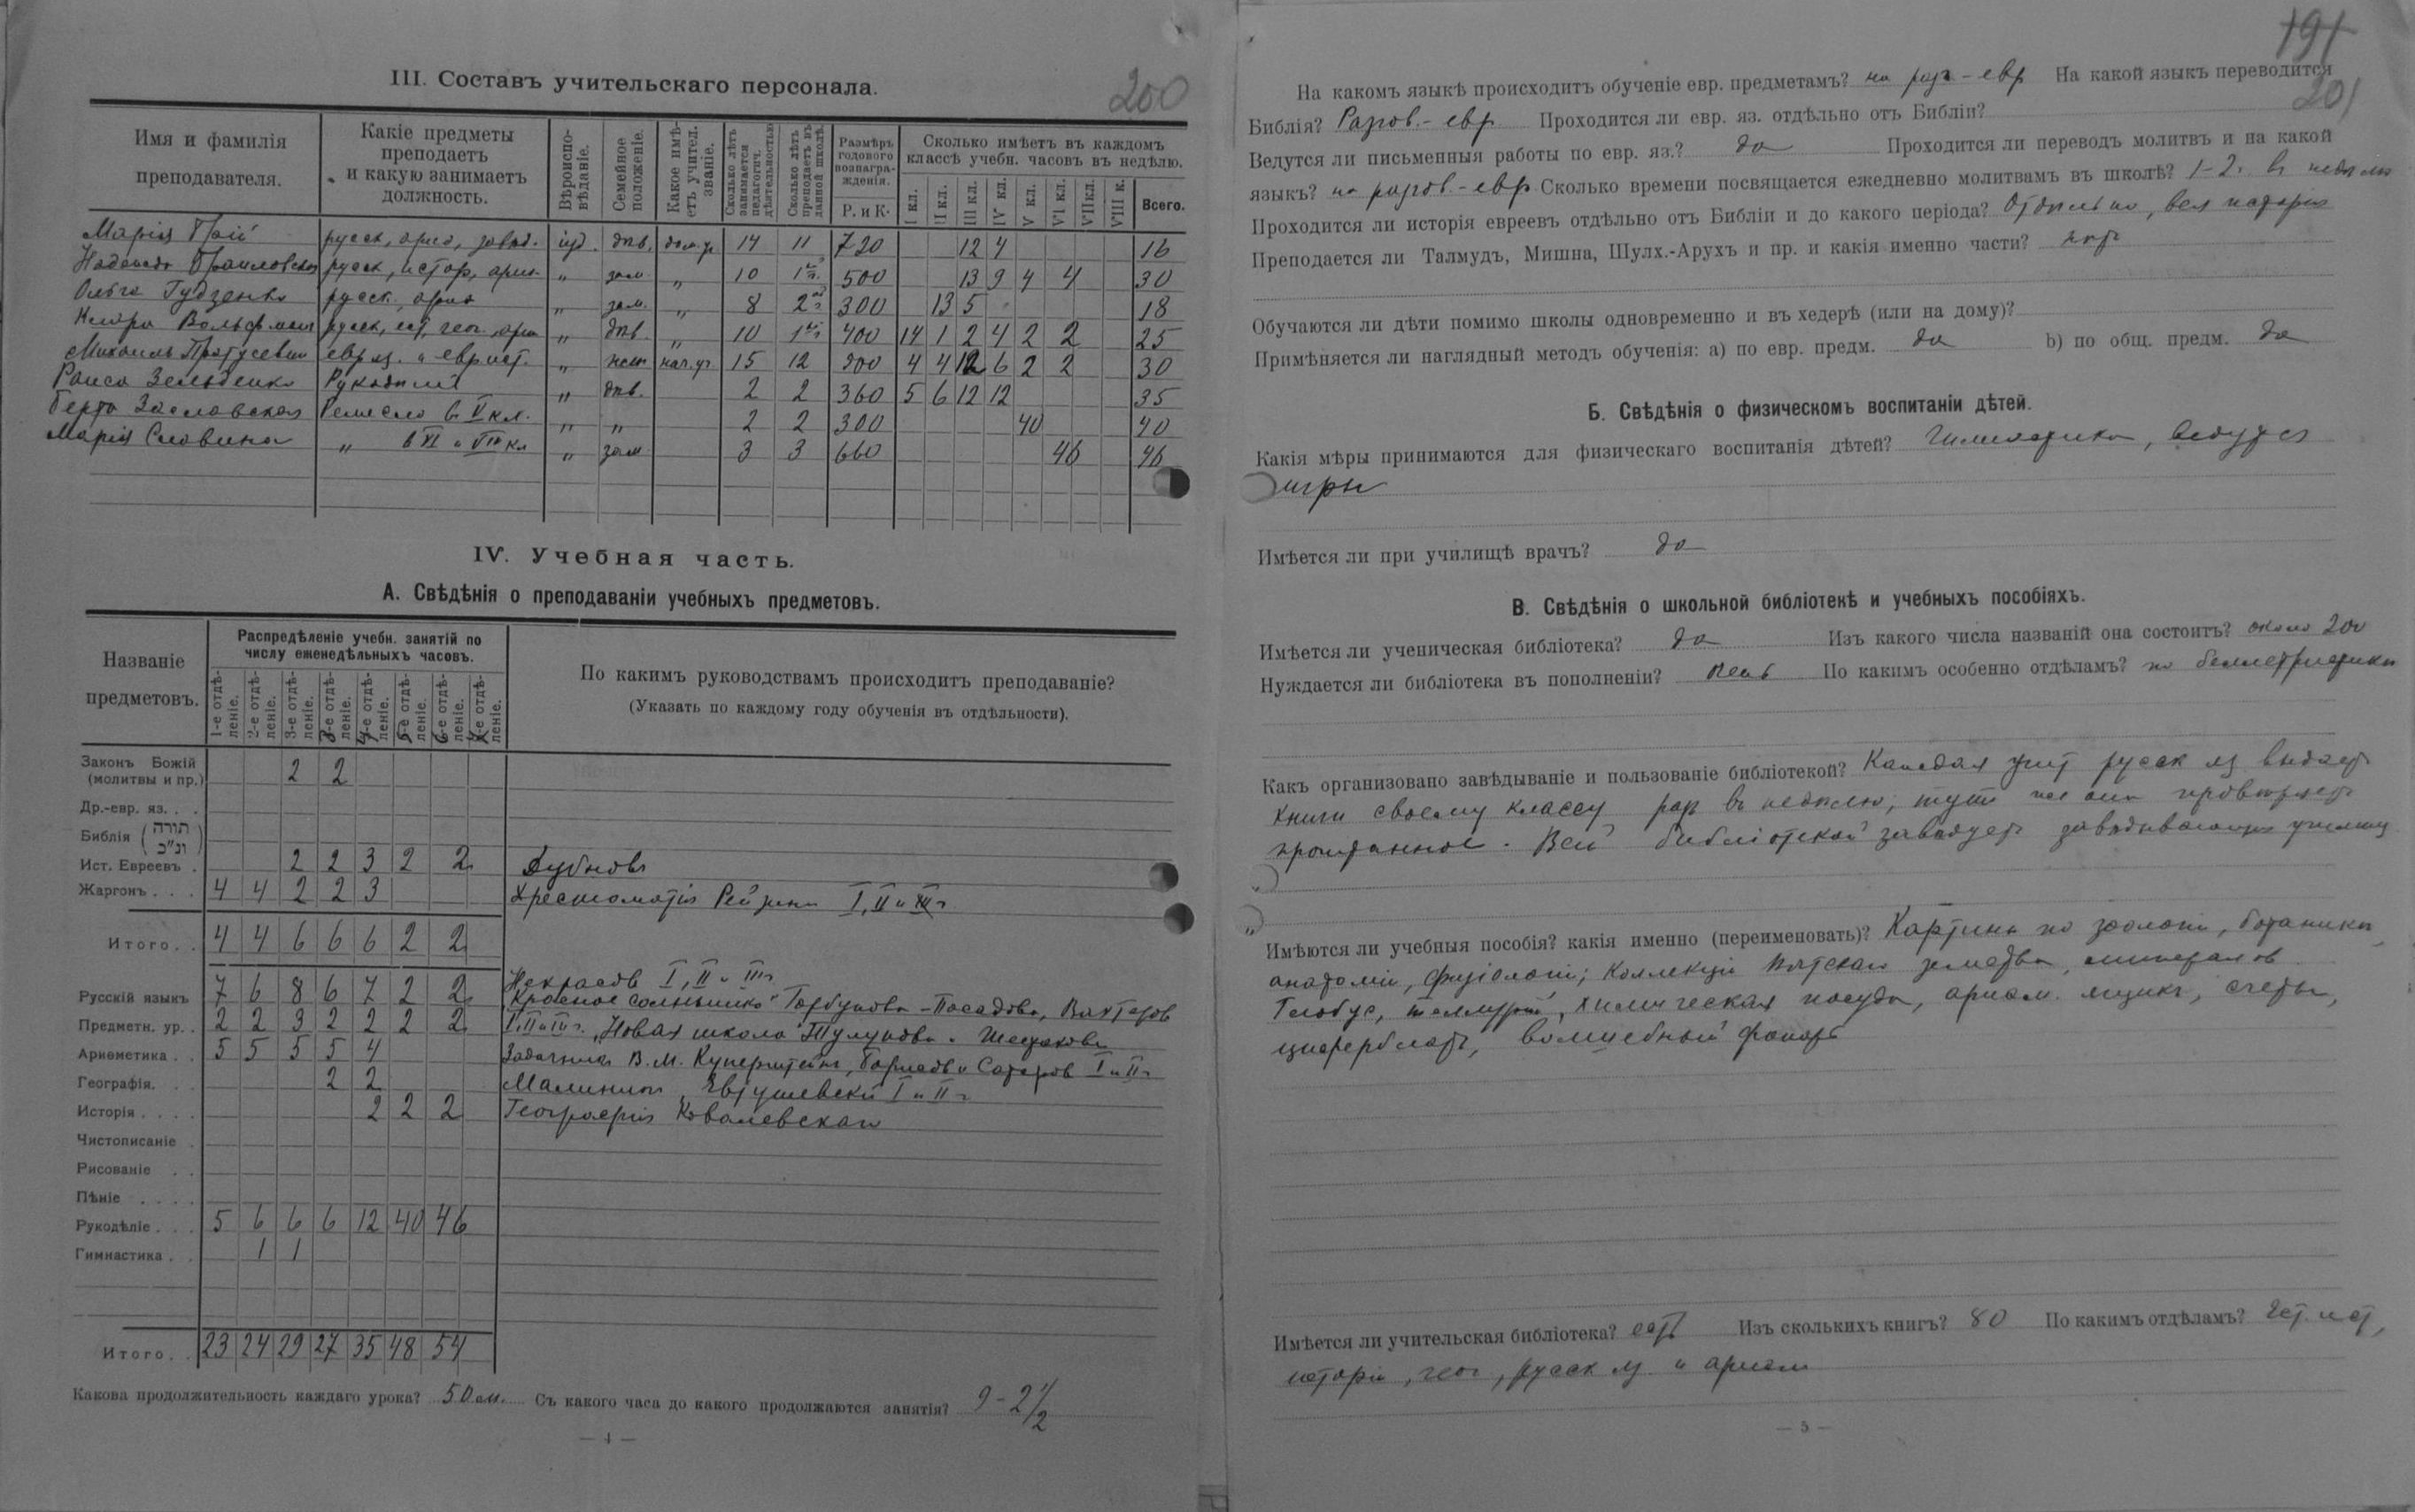 III. Составъ учительскаго персонала.
200
Имя и фамилія преподавателя.
Какіе предметы преподаетъ и какую занимаетъ должность.
Вѣроиспо-вѣданіе.
Семейное положеніе.
Какое имѣ-етъ учител. званіе.
Сколько лѣтъ занимается педагогич. дѣятельностью
Сколько лѣтъ преподаетъ въ данной школѣ.
Размѣръ годового вознагра-жденія.
Р. и К.
Сколько имѣетъ въ каждомъ классѣ учебн. часовъ въ недѣлю.
I кл. II кл. III кл. IV кл. V кл. VI кл. VII кл. VIII к. Всего.
Марія русск, ариѳ, завѣд. іуд. дѣв. дом. уч 14 11 720 12 4 16
русск, истор, ариѳ. „ зам „ 10 500 13 9 4 4 30
Ольга Гудзенко русск, ариѳ „ зам. „ 8 300 13 5 18
Клара Вольфсон русск, ест, геог. ариѳ „ дѣв. „ 10 400 14 1 2 4 2 2 25
Михаилъ евр яз. и евр ист. „ жен нач. уч 15 12 900 4 4 12 6 2 2 30
Раиса Рукодѣліе „ дѣв. 2 2 360 5 6 12 12 35
Берта Заславская Ремесло в V кл. „ „ 2 2 300 40 40
Марія Словина „ в VI и VII кл „ зам 3 3 660 46 46
IV. Учебная часть.
А. Свѣдѣнія о преподаваніи учебныхъ предметовъ.
Названіе предметовъ.
Распредѣленіе учебн. занятій по числу еженедѣльныхъ часовъ.
По какимъ руководствамъ происходитъ преподаваніе?
(Указать по каждому году обученія въ отдѣльности).
1-е отдѣ-леніе. 2-е отдѣ-леніе. 3-е отдѣ-леніе. 3-е отдѣ-леніе. 4-е отдѣ-леніе. 5-е отдѣ-леніе. 6-е отдѣ-леніе.
Законъ Божій (молитвы и пр.) 2 2
Др.-евр. яз. . .
Библія (תורה ונ"כ)
Ист. Евреевъ . 2 2 3 2 2 Дубновъ
Жаргонъ . . . 4 4 2 2 3 Хрестоматія Рейзена I, II и III ч
Итого. . 4 4 6 6 6 2 2
Некрасов I, II и III ч
Русскій языкъ 7 6 8 6 7 2 2 „Красное солнышко" Горбунова-Посадова, Вахтеров
Предметн. ур. . 2 2 3 2 2 2 2 I, II и III ч. „Новая школа" Тулупова и Шестакова
Ариѳметика . . 5 5 5 5 4 Задачник В. М. Куперштейн, и Сатаров I и II ч
Географія. . . 2 2 Малинин, Евтушевскій I и II ч
Исторія . . . . 2 2 2 Географія Ковалевская
Чистописаніе .
Рисованіе . .
Пѣніе . . . .
Рукодѣліе . . . 5 6 6 6 12 40 46
Гимнастика . . 1 1
Итого. . 23 24 29 27 35 48 54
Какова продолжительность каждаго урока? 50 м. Съ какого часа до какого продолжаются занятія? 9 - 2 1/2
— 4 —
191
201
На какомъ языкѣ происходитъ обученіе евр. предметамъ? на разг-евр На какой языкъ переводится
Библія? Разгов.-евр Проходится ли евр. яз. отдѣльно отъ Библіи?
Ведутся ли письменныя работы по евр. яз.? да Проходится ли переводъ молитвъ и на какой
языкъ? на разгов.-евр Сколько времени посвящается ежедневно молитвамъ въ школѣ? 1-2 ч. в недѣлю
Проходится ли исторія евреевъ отдѣльно отъ Библіи и до какого періода? Отдѣльно, вся исторія
Преподается ли Талмудъ, Мишна, Шулх.-Арухъ и пр. и какія именно части? нѣт
Обучаются ли дѣти помимо школы одновременно и въ хедерѣ (или на дому)?
Примѣняется ли наглядный методъ обученія: а) по евр. предм. да b) по общ. предм. да
Б. Свѣдѣнія о физическомъ воспитаніи дѣтей.
Какія мѣры принимаются для физическаго воспитанія дѣтей? Гимнастика, ведутся
игры
Имѣется ли при училищѣ врачъ? да
В. Свѣдѣнія о школьной библіотекѣ и учебныхъ пособіяхъ.
Имѣется ли ученическая библіотека? да Изъ какого числа названій она состоитъ? около 200
Нуждается ли библіотека въ пополненіи? По какимъ особенно отдѣламъ? по беллетристики
Какъ организовано завѣдываніе и пользованіе библіотекой? Каждая учит русск яз выдает
книги своему классу раз в недѣлю, тут же она провѣряет
прочитанное. Всей библіотекой завѣдует завѣдывающая училищ
Имѣются ли учебныя пособія? какія именно (переименовать)? Картины по зоологіи, ботаники,
анатоміи, физіологіи; Коллекціи Вятскаго земства, минералов
Глобус, теллурій, химическая посуда, ариѳм. ящик, счеты,
циферблат, волшебный фонарь
Имѣется ли учительская библіотека? есть Изъ сколькихъ книгъ? 80 По какимъ отдѣламъ? Ест. ист,
исторіи, геог, русск яз и ариѳм
— 5 —